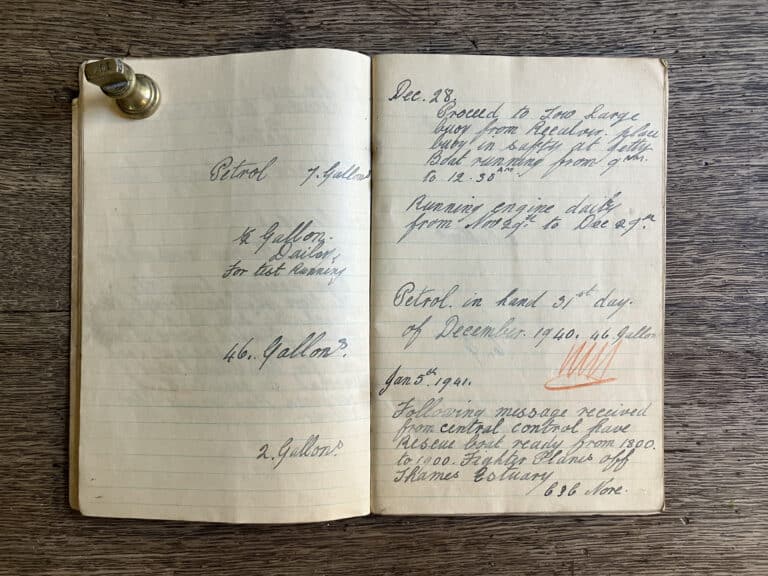 Petrol 7. Gallons
½ Gallon.
Dailey,
for test Running
46. Gallons.
2. Gallons.
Dec. 28.
Proceed to Tow Large
buoy from Reculver. place
buoy in safty at Jetty.
Boat running from 9 AM.
to 12.30 AM.
Running engine daily
from Nov 29th to Dec 27th
Petrol. in hand 31st day.
of December. 1940. 46 Gallon
Jan 5th. 1941.
Following message received
from central control have
Rescue boat ready from 1800.
to 1900. Fighter Planes off
Thames Estuary
Nore.